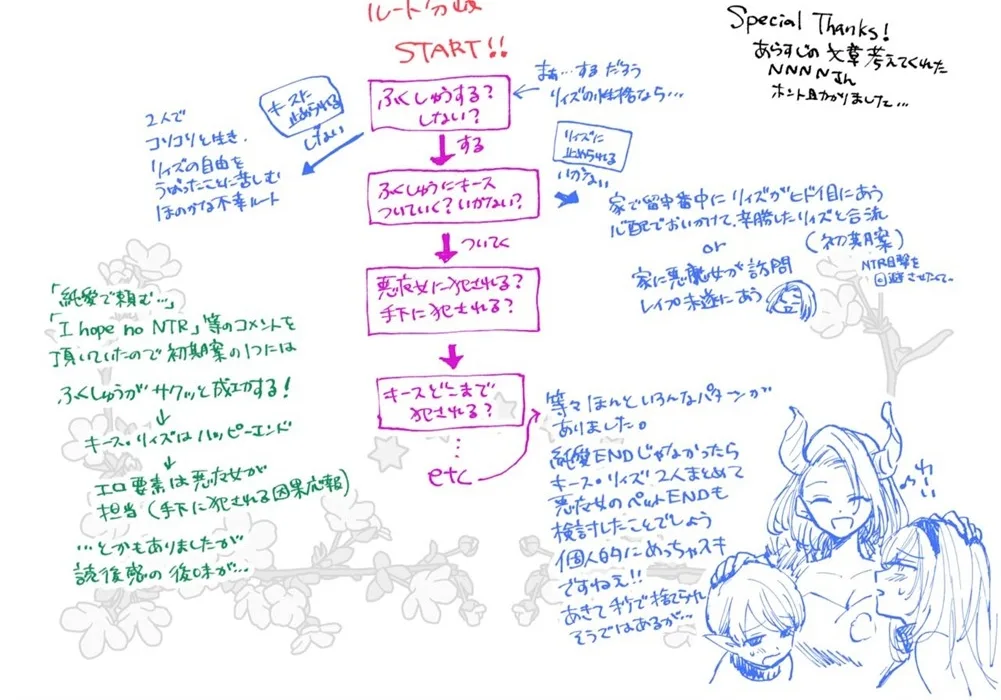 ルート分岐
START!!
ふくしゅうする?
しない?
まぁ…するだろう
リィズの性格なら…
キースに
止められる
しない
2人で
コソコソと生き、
リィズの自由を
うばったことに苦しむ
ほのかな不幸ルート
する
ふくしゅうにキース
ついていく?いかない?
リィズに
止められる
いかない
家で留守番中にリィズがヒドイ目にあう
心配でおいかけて、辛勝したリィズと合流
or
(初期案)
NTR目撃を
回避させたくて。
家に悪魔女が訪問
レイプ未遂にあう
ついてく
悪魔女に犯される?
手下に犯される?
キースどこまで
犯される?
⋮
etc
等々ほんといろんなパターンが
ありました。
純愛ENDじゃなかったら
キース・リィズ2人まとめて
悪魔女のペットENDも
検討したことでしょう
個人的にめっちゃスキ
ですねぇ!!
あきて秒で捨てられ
そうではあるが…
わーい
「純愛で頼む…」
「I hope no NTR」等のコメントを
頂いていたので初期案の1つには
ふくしゅうがサクッと成功する!
↓
キース・リィズはハッピーエンド
↓
エロ要素は悪魔女が
担当(手下に犯される因果応報)
…とかもありましたが
読後感の後味が…
Special Thanks!
あらすじの文章考えてくれた
NNNNさん
ホント助かりました…